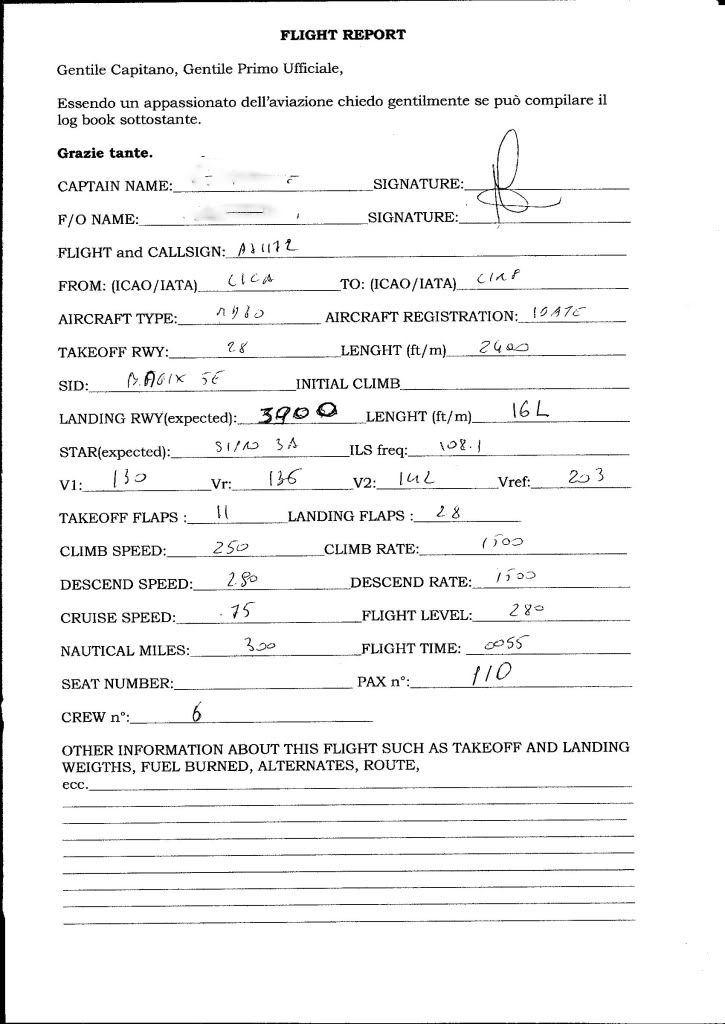 FLIGHT REPORT
Gentile Capitano, Gentile Primo Ufficiale,
Essendo un appassionato dell'aviazione chiedo gentilmente se può compilare il
log book sottostante.
Grazie tante.
CAPTAIN NAME: SIGNATURE:
F/O NAME: SIGNATURE:
FLIGHT and CALLSIGN:
FROM: (ICAO/IATA) LICA TO: (ICAO/IATA) LIRF
AIRCRAFT TYPE: AIRCRAFT REGISTRATION:
TAKEOFF RWY: 28 LENGHT (ft/m) 2400
SID: 5E INITIAL CLIMB
LANDING RWY(expected): 3900 LENGHT (ft/m) 16L
STAR(expected): 3A ILS freq: 108.1
V1: 130 Vr: 136 V2: 142 Vref: 203
TAKEOFF FLAPS : 11 LANDING FLAPS : 28
CLIMB SPEED: 250 CLIMB RATE: 1500
DESCEND SPEED: 280 DESCEND RATE: 1500
CRUISE SPEED: .75 FLIGHT LEVEL: 280
NAUTICAL MILES: 300 FLIGHT TIME: 0055
SEAT NUMBER: PAX n°: 110
CREW n°: 6
OTHER INFORMATION ABOUT THIS FLIGHT SUCH AS TAKEOFF AND LANDING
WEIGTHS, FUEL BURNED, ALTERNATES, ROUTE,
ecc.